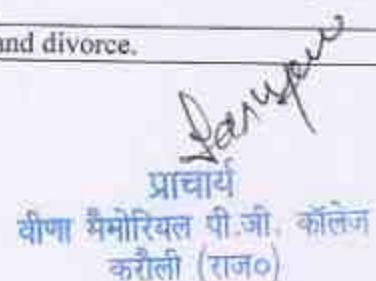 and divorce.
प्राचार्य
वीणा मैमोरियल पी.जी. कॉलेज
करौली (राज०)